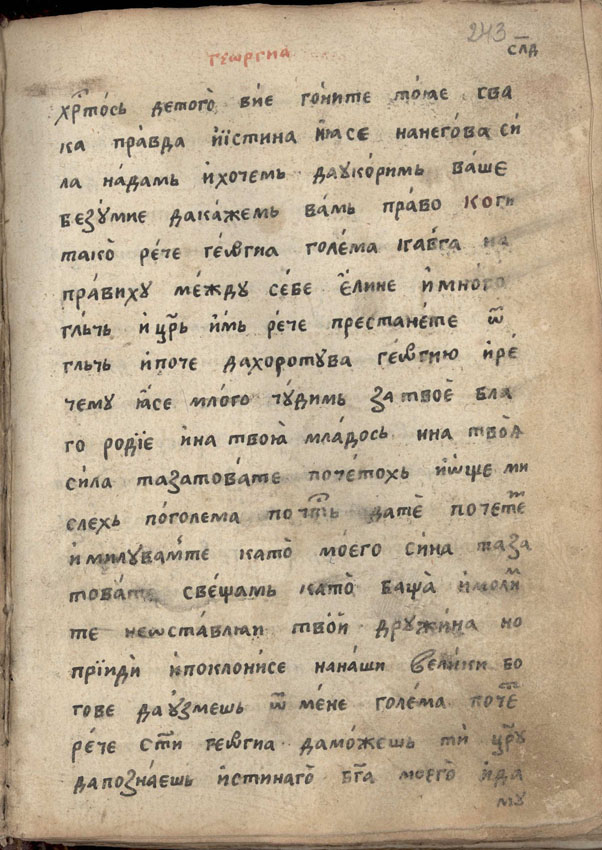 243
слд
геѡргиа
хрⷭ҇тось детого̀ ви́е гони́те то́ꙗе сва
ка пра́вда и҆ и҆́стина и҆ а҆се нанего́ва си
ла на́дамь и҆хо́чемь даꙋко́римь ва́ше
безꙋ́мие дака́жемь ва́мь пра́во коги
тако̀ ре́че гео́ѡгиа голе́ма кавга на
пра́виxꙋ ме́ждꙋ се́бе є҆́лине и҆мно́го
гль́чь и҆ цр҃ь и҆́мь ре́че престане́те ѿ
гль́чь и҆поче дахоротꙋва гео́ѡгию и҆ре́
чемꙋ ꙗ҆́се мло́го чꙋ́димь за твоѐ бла
го роді́е и҆на твою̀ мла́дось и҆на твоꙗ̀
си́ла тазатова́те поче́тохь и҆ѡ҆ще ми
слехь по́голема почⷭ҇ть датѐ почетеⷨ
и҆милꙋва́мте като̀ мо́его си́на таза
това́те све́щамь като̀ баща̀ и҆молиⷨ
те неѡста́влꙗи твои̑ дрꙋжи́на но
прїиди̑ и҆поклони́се нана́ши вели́ки бо
гове да ꙋ҆́змешь ѿ ме́не голе́ма почеⷭ҇
ре́че ст҃и гео́ѡгиа дамо́жешь ти̑ цр҃ꙋ
дапозна́ешь и҆́стинаго̀ бг҃а моего̀ и҆да
мꙋ